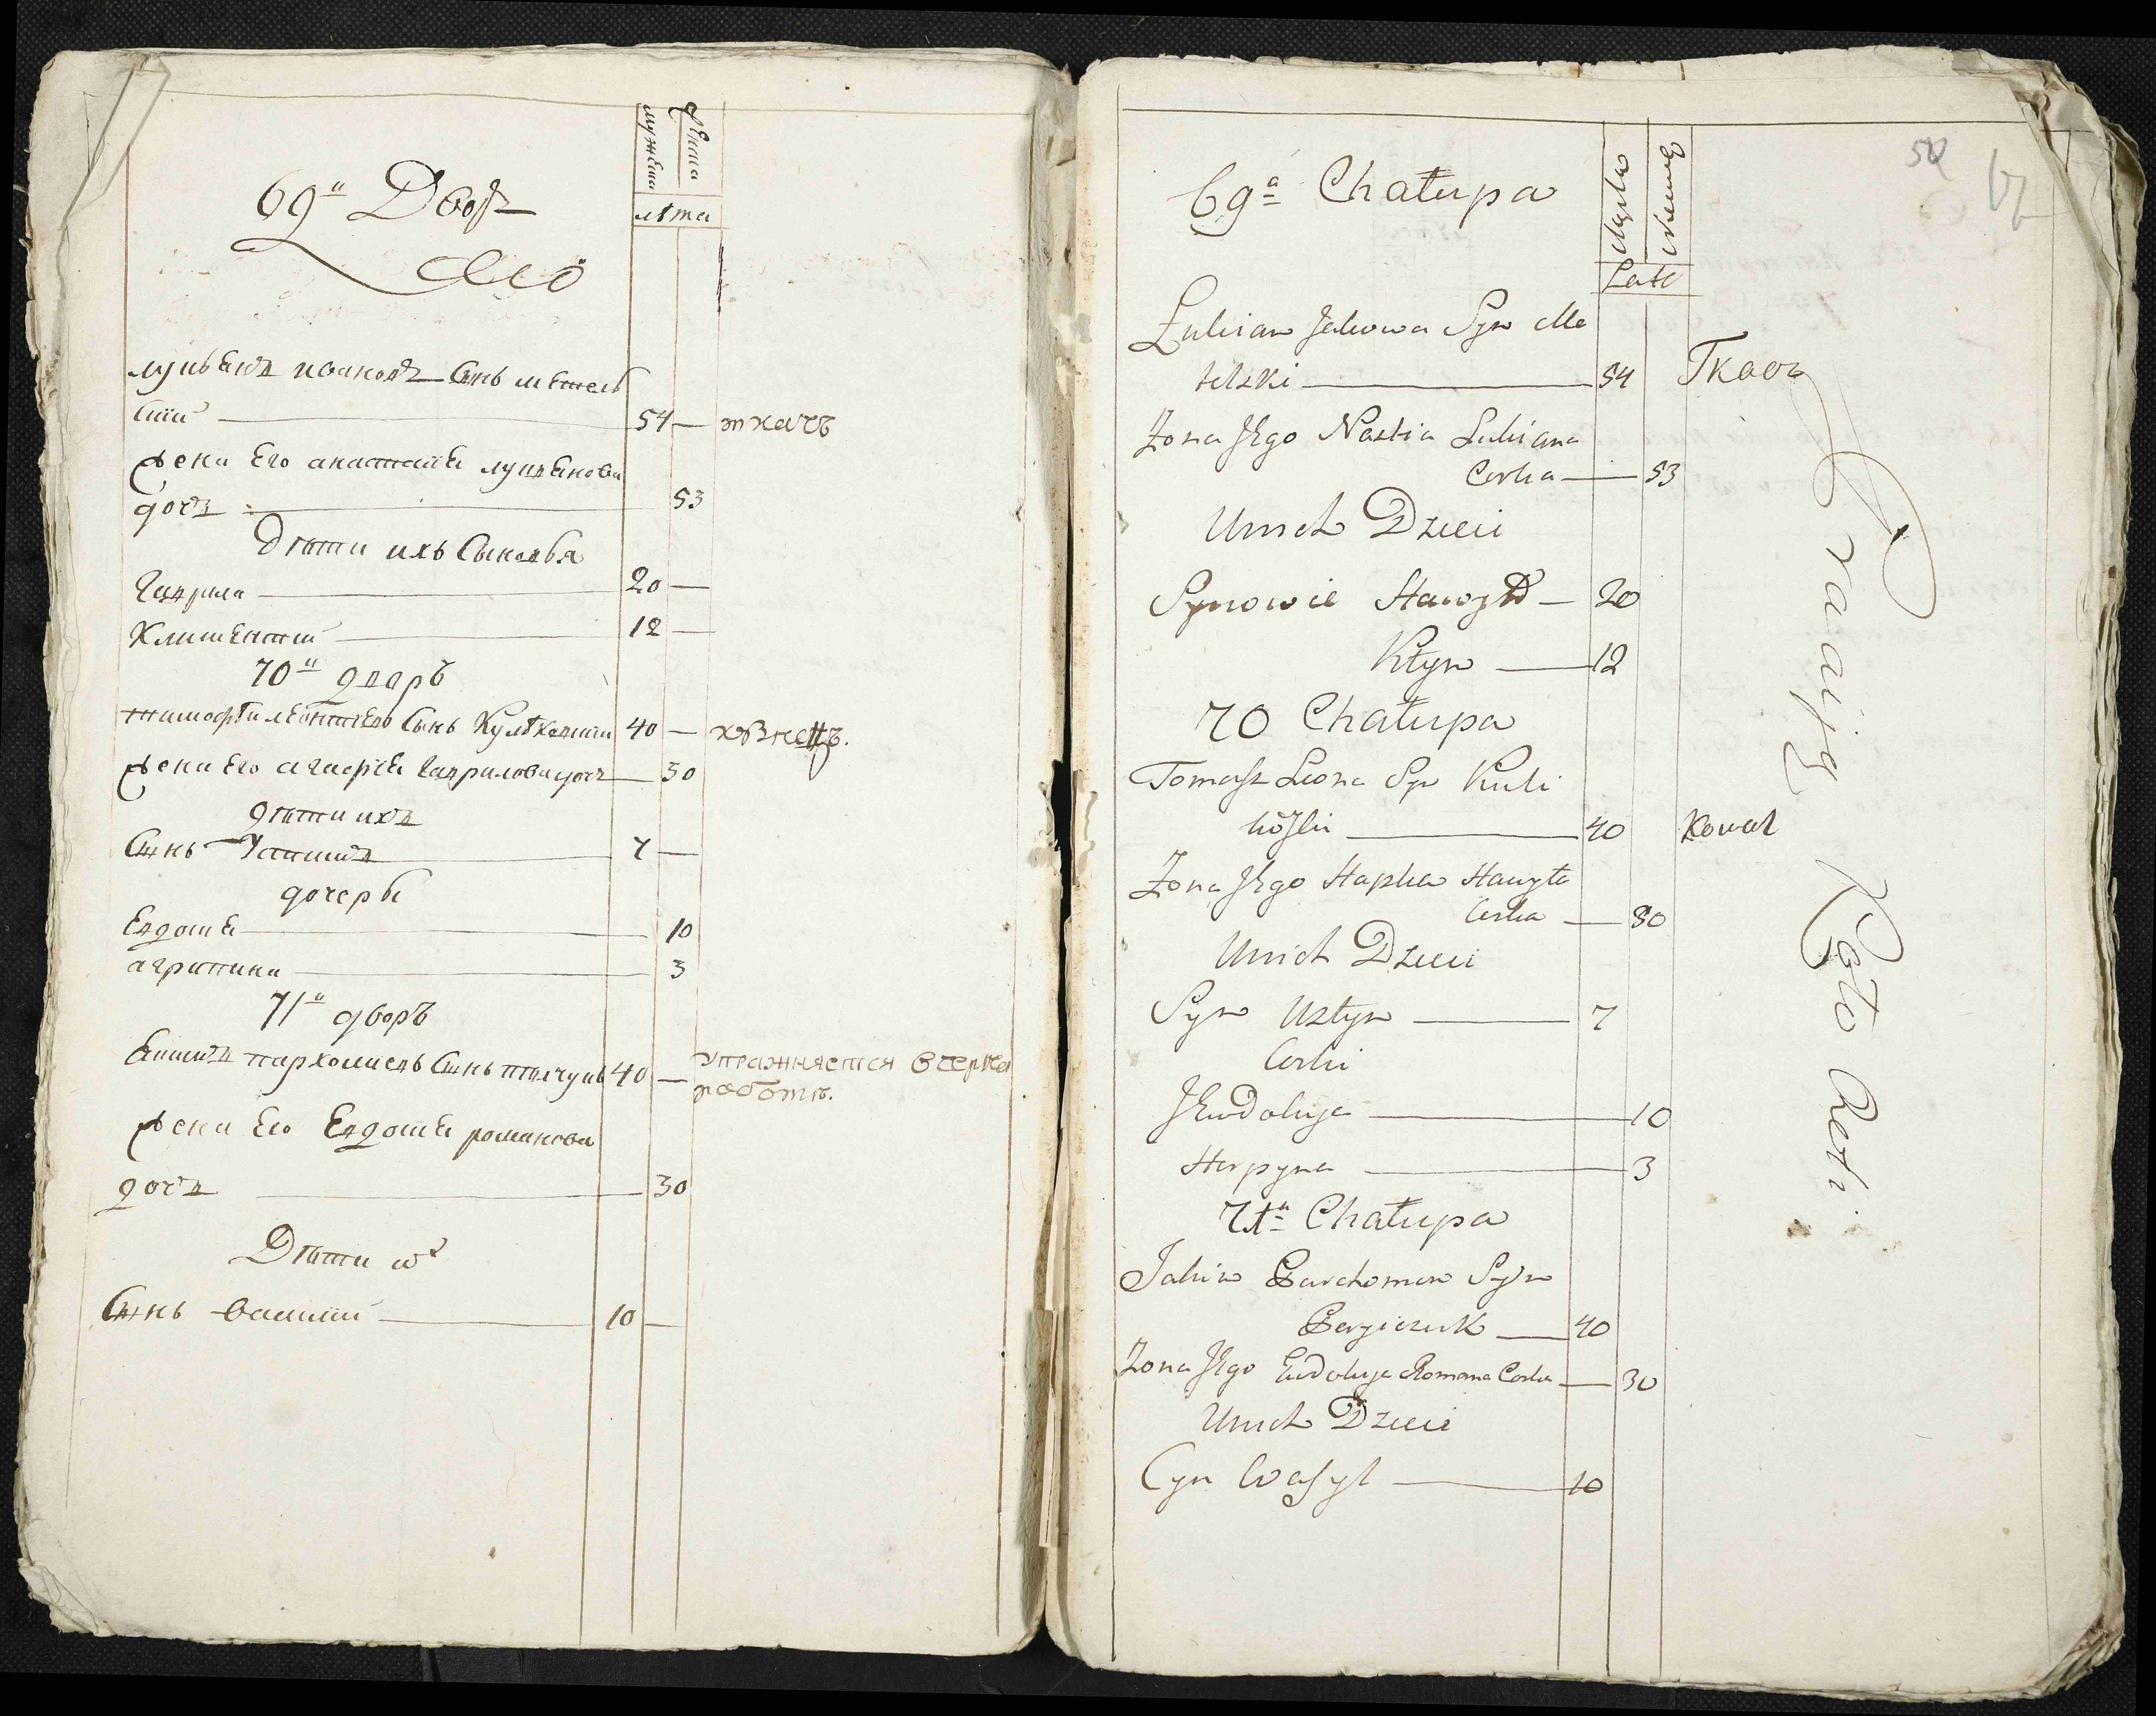 мужеска
женска
лѣта
69й Дворъ
лукьянъ ивановъ сынъ мател
скій 54 — ткачъ
жена Его анастасия лукьянова
дочь 53
Дѣти ихъ Сыновья
Гаврила 20 —
Климентий 12 —
70й дворъ
тимофей леонтиевъ Сынъ 40 —
жена Его агафия гаврилова дочь 30
дѣти ихъ
Сынъ Устинъ 7 —
дочери
Евдокия 10
агрипина 3
71й дворъ
якимъ пархомиевъ Сынъ 40 — упражняется в черной
работѣ.
жена Его Евдокия романова
дочь 30
Дѣти ихъ
Сынъ василий 10 —
50
69a Chałupa
Męska
Żenska
Late
Łukian Jakowa Syn Me
telski 54 Ткачъ
Żona Jego Nastia Lukiana
Corka 53
Unich Dzieci
Synowie Hawryło 20
Kłym 12
70 Chałupa
Tomasz Leona Syn Kuli
kowski 40 Kowal
Żona Jego Hapka Hawryła
Corka 30
Unich Dzieci
Syn Ustyn 7
Corki
Jewdokija 10
Harpyna 3
71a Chałupa
Jakim Parchomow Syn
40
Żona Jego Ewdokija Romana Corka 30
Unich Dzieci
Cyn Wasyl 10
Pracuję Koło Roli